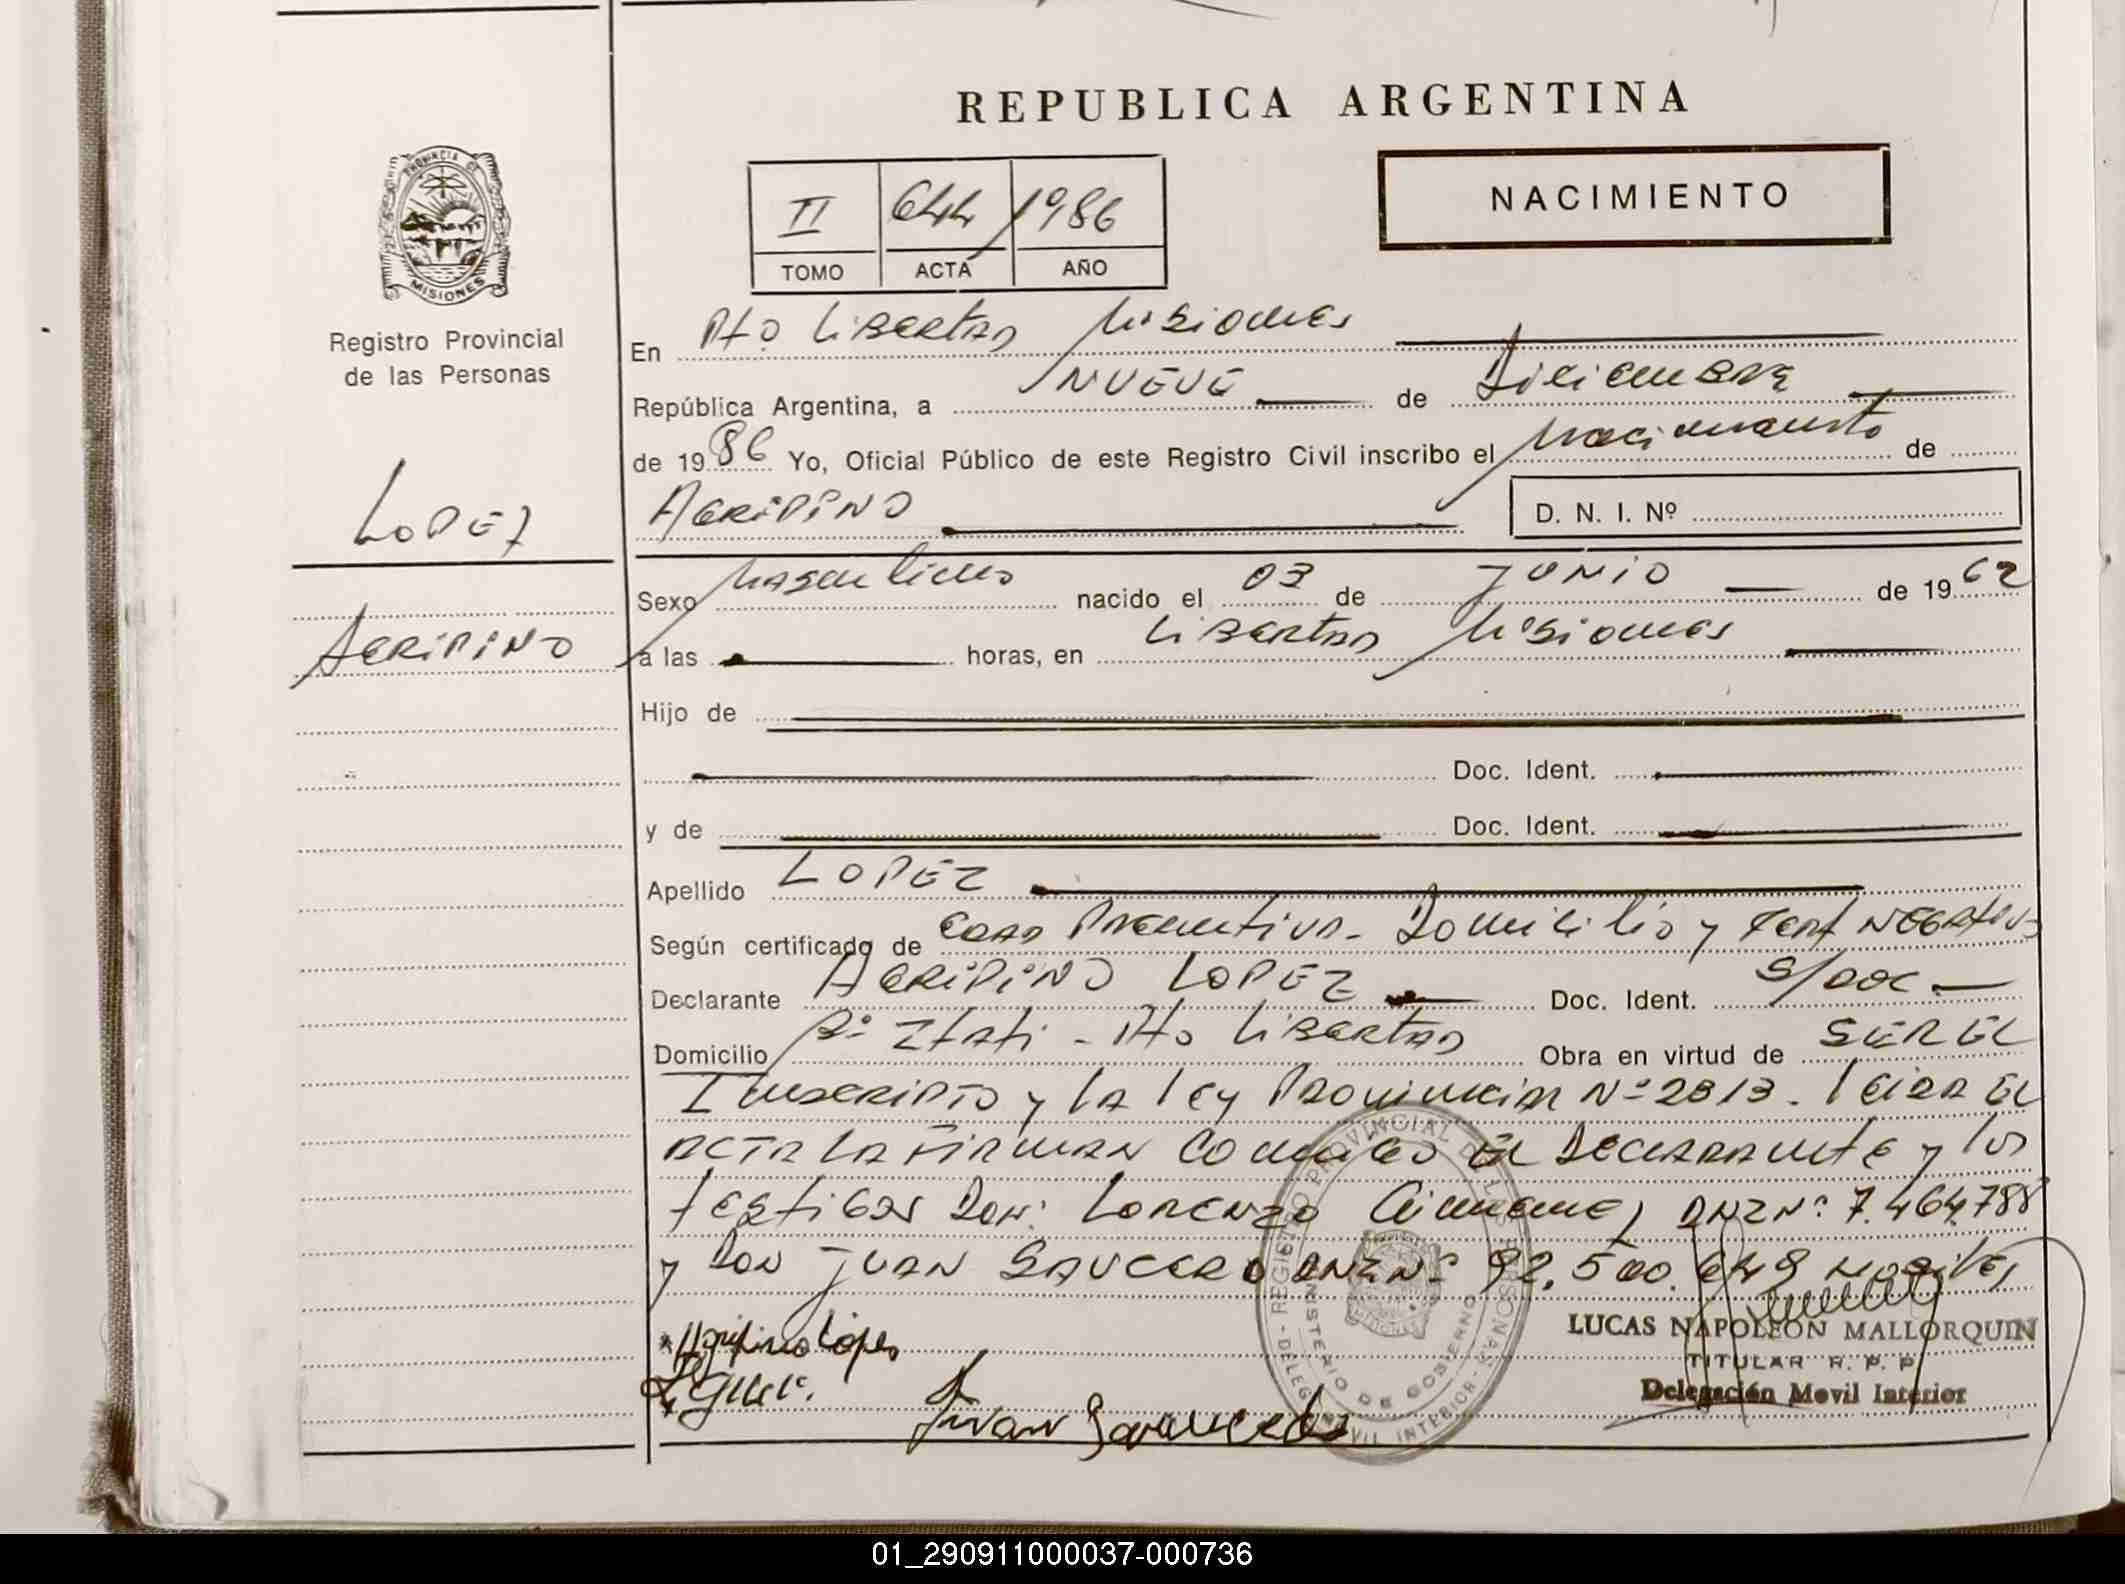 REPUBLICA ARGENTINA
NACIMIENTO
II 644 1986
TOMO ACTA AÑO
PROVINCIA DE MISIONES
Registro Provincial
de las Personas
LOPEZ
AGRIPINO
En Pto LIBERTAD Misiones
República Argentina, a NUEVE de Diciembre
de 1986 Yo, Oficial Público de este Registro Civil inscribo el Nacimiento de
AGRIPINO D. N. I. Nº
Sexo Masculino nacido el 03 de JUNIO de 1962
a las horas, en LIBERTAD Misiones
Hijo de
Doc. Ident.
y de Doc. Ident.
Apellido LOPEZ
Según certificado de EDAD PRESUNTIVA - Domicilio y CERT NEGATIVO
Declarante AGRIPINO LOPEZ Doc. Ident. S/DOC
Domicilio Bº ITATI - Pto LIBERTAD Obra en virtud de SER EL
INSCRIPTO y LA LEY PROVINCIAL Nº 2313. LEIDA EL
ACTA LA FIRMAN CONMIGO EL DECLARANTE y LOS
TESTIGOS DON: LORENZO DNI Nº 7.464.788
y DON JUAN SAUCEDO DNI Nº 92.500.649 HABILES
Agripino López
LUCAS NAPOLEON MALLORQUIN
TITULAR R. P. P.
Delegación Movil Interior
Juan Saucedo
REGISTRO PROVINCIAL DE LAS PERSONAS - DELEG. MOVIL INTERIOR -
MINISTERIO DE GOBIERNO
01_290911000037-000736